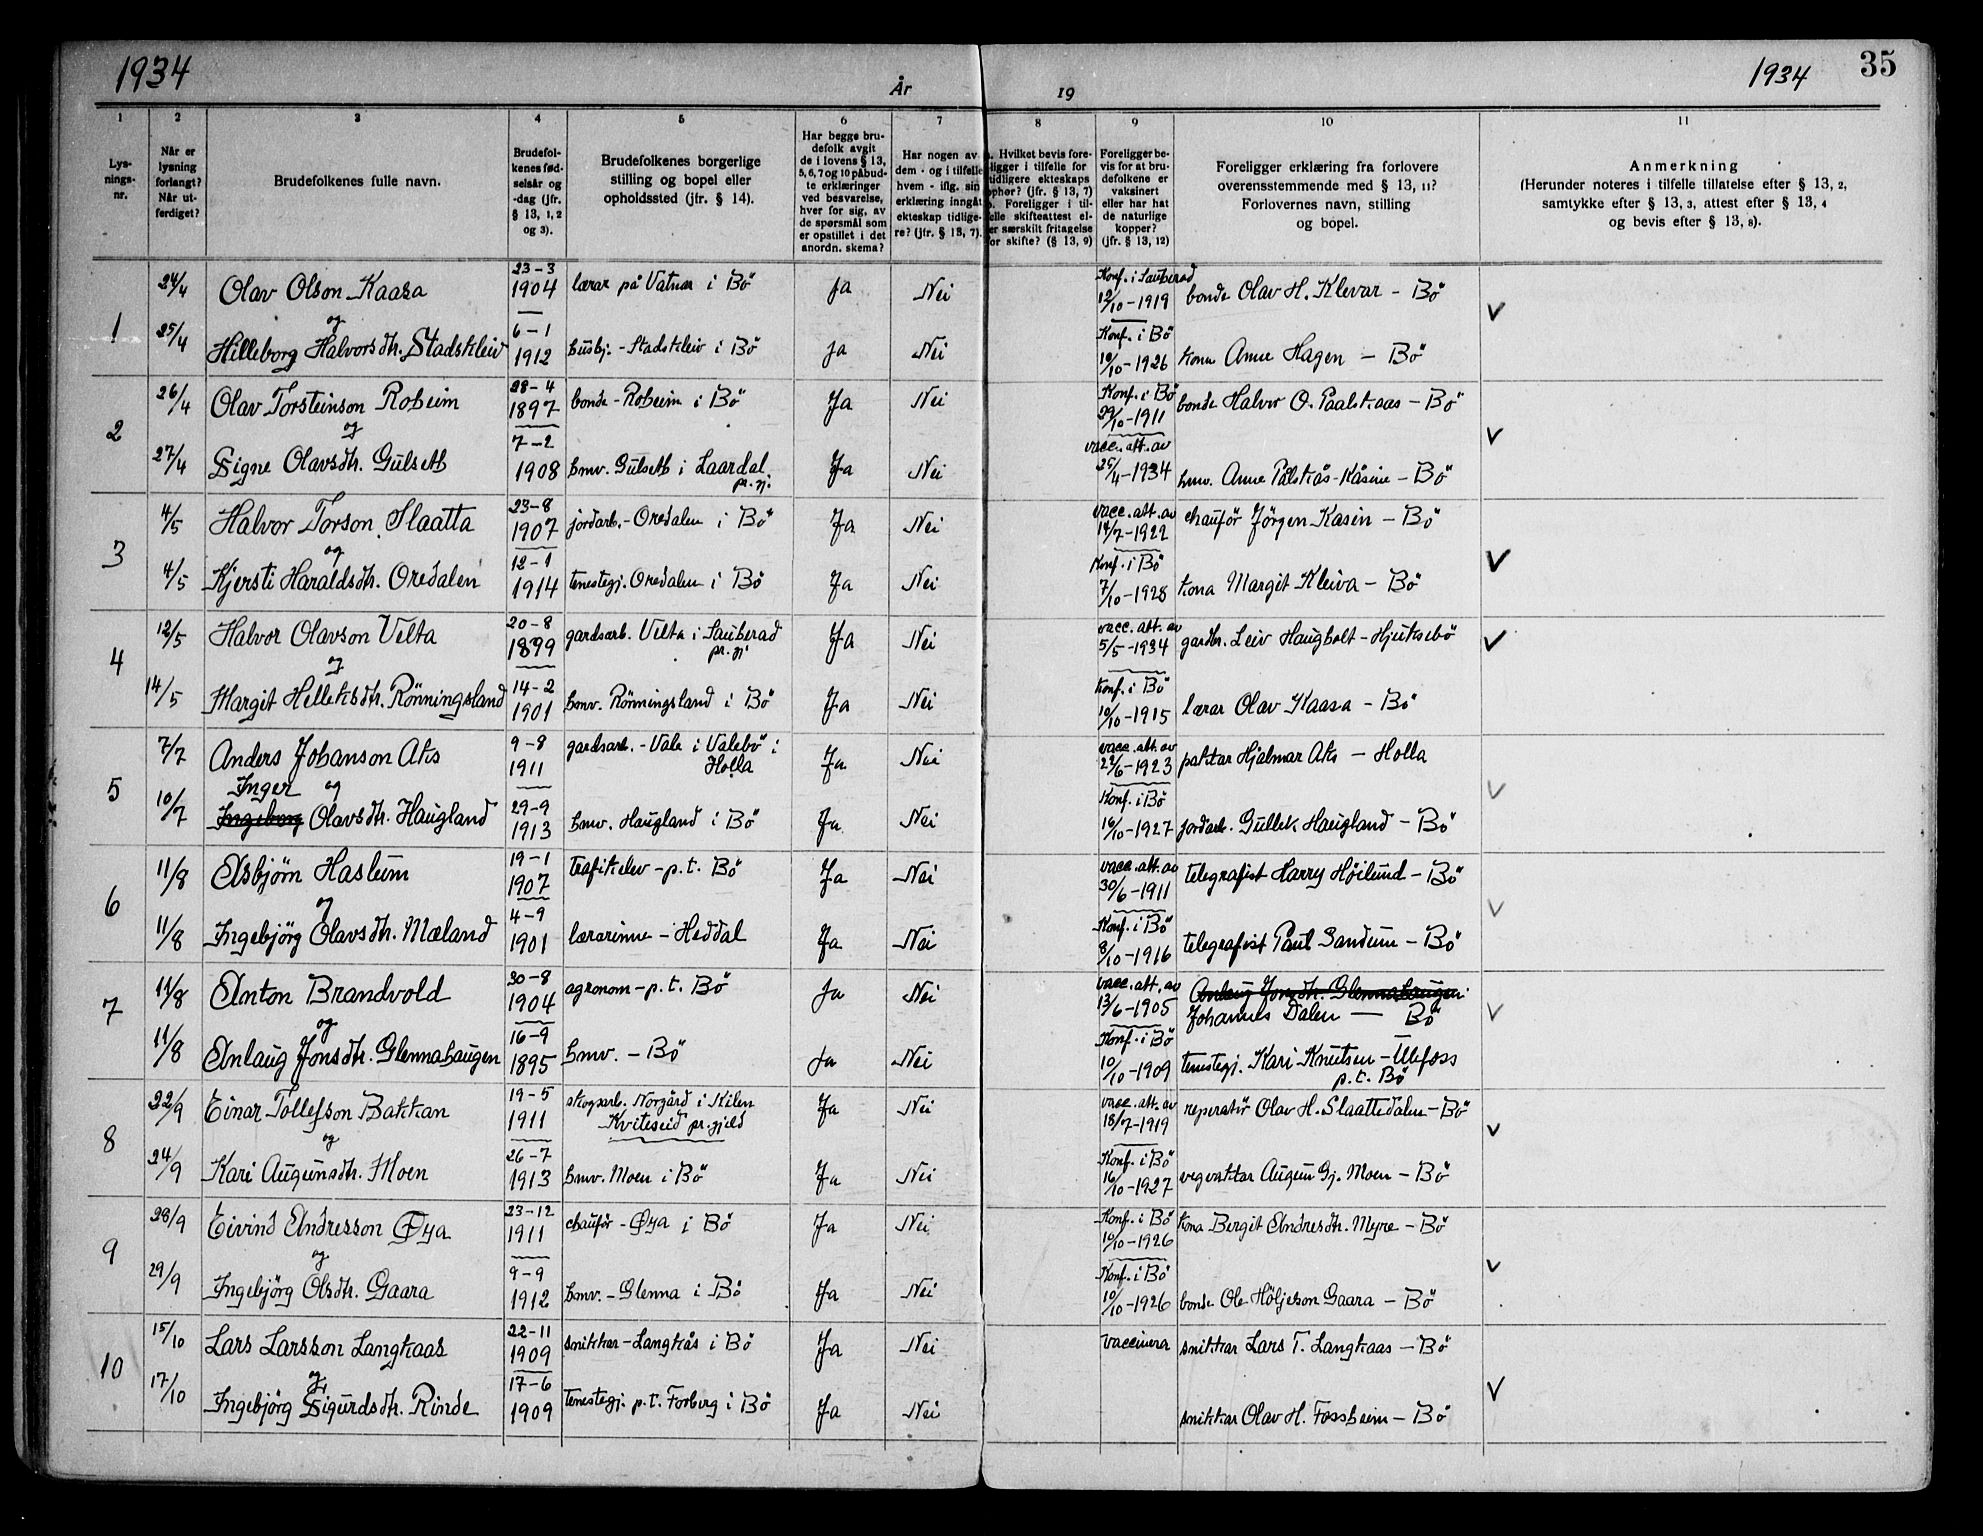 1934
År
19
1934
35
1 2 3 4 5 6 7 8 9 10 11
Lys-
nings-
nr.
Når er
lysning
forlangt?
Når ut-
ferdiget?
Brudefolkenes fulle navn.
Brudefol-
kenes fød-
selsår og
-dag (jfr.
§ 13, 1, 2
og 3).
Brudefolkenes borgerlige
stilling og bopel eller
opholdssted (jfr. § 14).
Har begge bru-
defolk avgit
de i lovens § 13,
5, 6, 7 og 10 påbud-
te erklæringer
ved besvarelse,
hver for sig, av
de spørsmål som
er opstillet i det
anordn. skema?
Har nogen av
dem - og i tilfelle
hvem - iflg. sin
erklæring inngåt
ekteskap tidlige-
re? (jfr. § 13, 7).
a. Hvilket bevis fore-
ligger i tilfelle for
tidligere ekteskaps
ophør? (jfr. § 13, 7)
b. Foreligger i til-
felle skifteattest el-
er særskilt fritagelse
for skifte? (§ 13, 9)
Foreligger be-
vis for at bru-
defolkene er
vaksinert
eller har hat
de naturlige
kopper?
(jfr. § 13, 12)
Foreligger erklæring fra forlovere
overensstemmende med § 13, 11?
Forlovernes navn, stilling
og bopel.
Anmerkning
(Herunder noteres i tilfelle tillatelse efter § 13, 2,
samtykke efter § 13, 3, attest efter § 13, 4
og bevis efter § 13, 8).
1
24/4 Olav Olson Kaasa 23-3 1904 lærar på Vatnar i Bö Ja Nei Konf. i Sauherad 12/10-1919 bonde Olav H. Klevar - Bö
og
25/4 Hilleborg Halvorsdtr. Stadskleiv 6-1 1912 busbj. - Stadskleiv i Bö Ja Nei Konf. i Bö 10/10-1926 kona Anne Hagen - Bö
2
26/4 Olav Torsteinson Roheim 28-4 1897 bonde - Roheim i Bö Ja Nei Konf. i Bö 29/10-1911 bonde Halvor O. Paalskaas - Bö
og
27/4 Signe Olavsdtr. Gulseth 7-2 1908 hmv. Gulseth i Laardal pr.gj. Ja Nei vacc. att. av 25/4-1934 hmv. Anne Pålskås-Kåsine - Bö
3
4/5 Halvor Torson Slaatta 23-8 1907 jordarb. - Oredalen i Bö Ja Nei vacc. att. av 14/7-1922 chauför Jörgen Kasin - Bö
og
4/5 Kjersti Haraldsdtr. Oredalen 12-1 1914 tenestegj. Oredalen i Bö Ja Nei Konf. i Bö 7/10-1928 kona Margit Kleiva - Bö
4
12/5 Halvor Olavson Velta 20-8 1899 gardsarb. Velta i Sauherad pr. gj. Ja Nei vacc. att. av 5/5-1934 gardbr. Leiv Haugholt - Hjuksebö
og
14/5 Margit Helleksdtr. Rönningsland 14-2 1901 hmv. Rönningsland i Bö Ja Nei Konf. i Bö 10/10-1915 lærar Olav Kaasa - Bö
5
7/7 Anders Johanson Aks 9-8 1911 gardsarb. - Vale i Valebö i Holla Ja Nei vacc. att. av 22/6-1923 paktar Hjalmar Aks - Holla
Inger og
10/7 Ingeborg Olavsdtr. Haugland 29-9 1913 hmv. Haugland i Bö Ja Nei Konf. i Bö 16/10-1927 jordarb. Gullek Haugland - Bö
6
11/8 Asbjørn Haslum 19-1 1907 trafikelev - p.t. Bö Ja Nei vacc. att. av 30/6-1911 telegrafist Harry Höilund - Bö
og
11/8 Ingebjörg Olavsdtr. Mæland 4-9 1901 lærarinne - Heddal Ja Nei Konf. i Bö 8/10-1916 telegrafist Paul Sandum - Bö
7
11/8 Anton Brandvold 30-8 1904 agronom - p.t. Bö Ja Nei vacc. att. av 13/6-1905 Anlaug Jonsdtr. Glennahaugen
Johannes Dalen - Bö
og
11/8 Anlaug Jonsdtr. Glennahaugen 16-9 1895 hmv. - Bö Ja Nei Konf. i Bö 10/10-1909 tenestegj. Kari Knutsen - Ulefoss
p.t. Bö
8
22/9 Einar Tollefson Bakkan 19-5 1911 skogsarb. Norgård i Kilen Kviteseid pr.gjeld Ja Nei vacc. att. av 18/7-1919 reperatör Olav H. Slaattedalen - Bö
og
24/9 Kari Augunsdtr. Moen 26-7 1913 hmv. Moen i Bö Ja Nei Konf. i Bö 16/10-1927 vegvaktar Augun Gj. Moen - Bö
9
28/9 Eivind Andresson Øya 23-12 1911 chauför - Øya i Bö Ja Nei Konf. i Bö 10/10-1926 kona Bergit Andresdtr. Myre - Bö
og
29/9 Ingebjörg Olsdtr. Gaara 9-9 1912 hmv. - Glenna i Bö Ja Nei Konf. i Bö 10/10-1926 bonde Ole Höljeson Gaara - Bö
10
15/10 Lars Larsson Langkaas 22-11 1909 snikkar - Langkås i Bö Ja Nei vaccinera snikkar Lars T. Langkaas - Bö
og
17/10 Ingebjörg Sigurdsdtr. Rinde 17-6 1909 tenestegj. p.t. Forberg i Bö Ja Nei snikkar Olav H. Fossheim - Bö